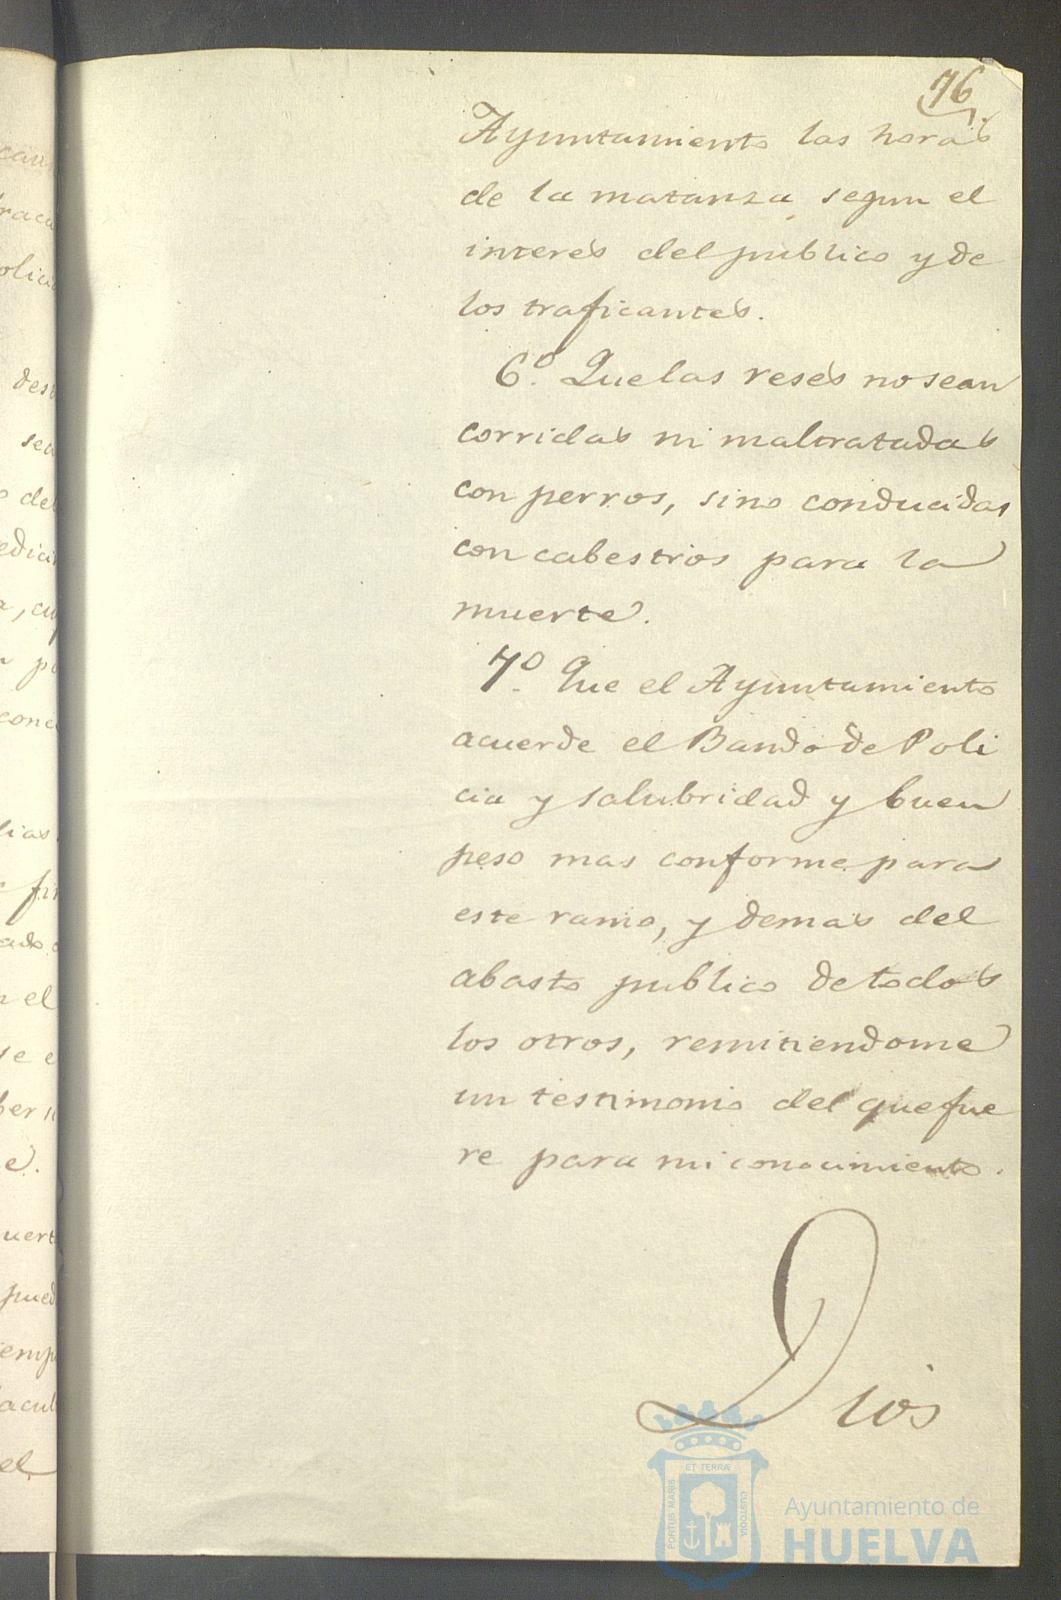 76
Ayuntamiento las horas
de la matanza, segun el
interes del publico y de
los traficantes.
6.º Que las reses no sean
corridas ni maltratadas
con perros, sino conducidas
con cabestros para la
muerte.
7.º Que el Ayuntamiento
acuerde el Bando de Poli
cia y salubridad y buen
peso mas conforme para
este ramo, y demas del
abasto publico de todos
los otros, remitiendome
un testimonio del que fue
re para mi conocimiento.
Dios
PORTUS MARIS ET TERRÆ CUSTODIA
Ayuntamiento de
HUELVA